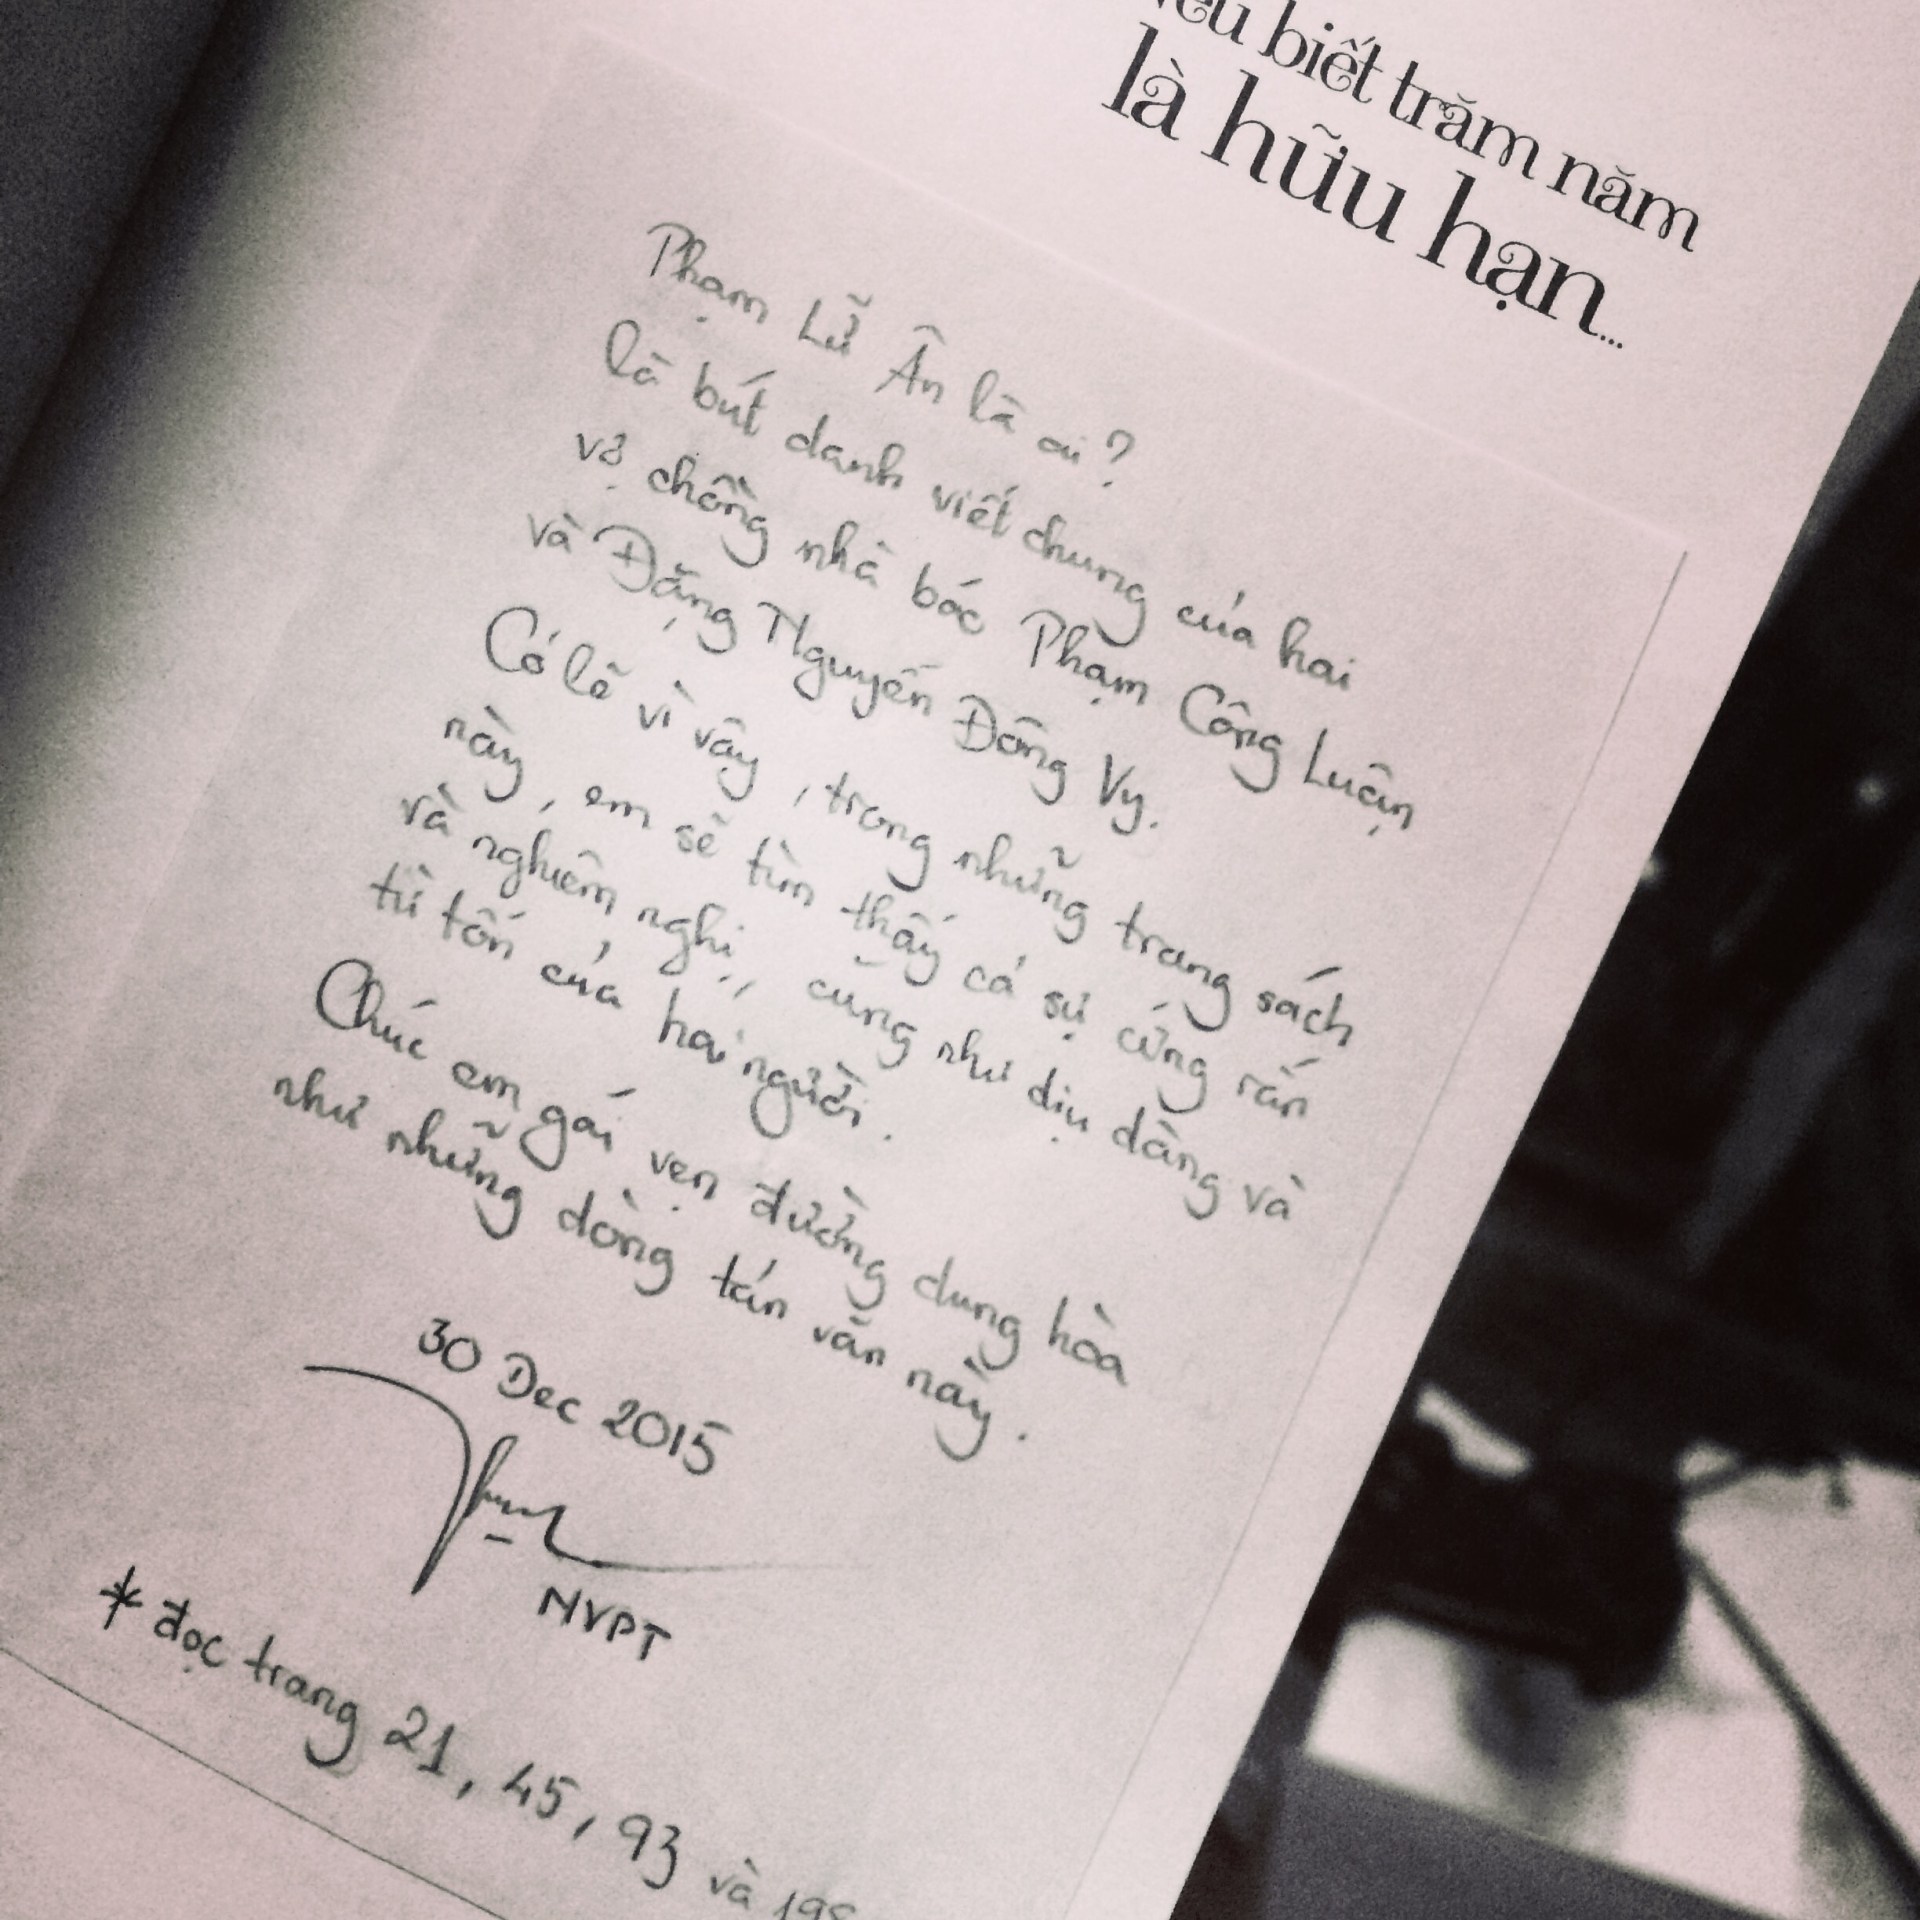 biết trăm năm
là hữu hạn...
Phạm Lữ Ân là ai?
là bút danh viết chung của hai
vợ chồng nhà báo Phạm Công Luận
và Đặng Nguyễn Đông Vy.
Có lẽ vì vậy, trong những trang sách
này, em sẽ tìm thấy cả sự cứng rắn
và nghiêm nghị, cũng như dịu dàng và
từ tốn của hai người.
Chúc em gái vẹn đường dung hòa
như những dòng tản văn này.
30 Dec 2015
NVPT
* đọc trang 21, 45, 93 và